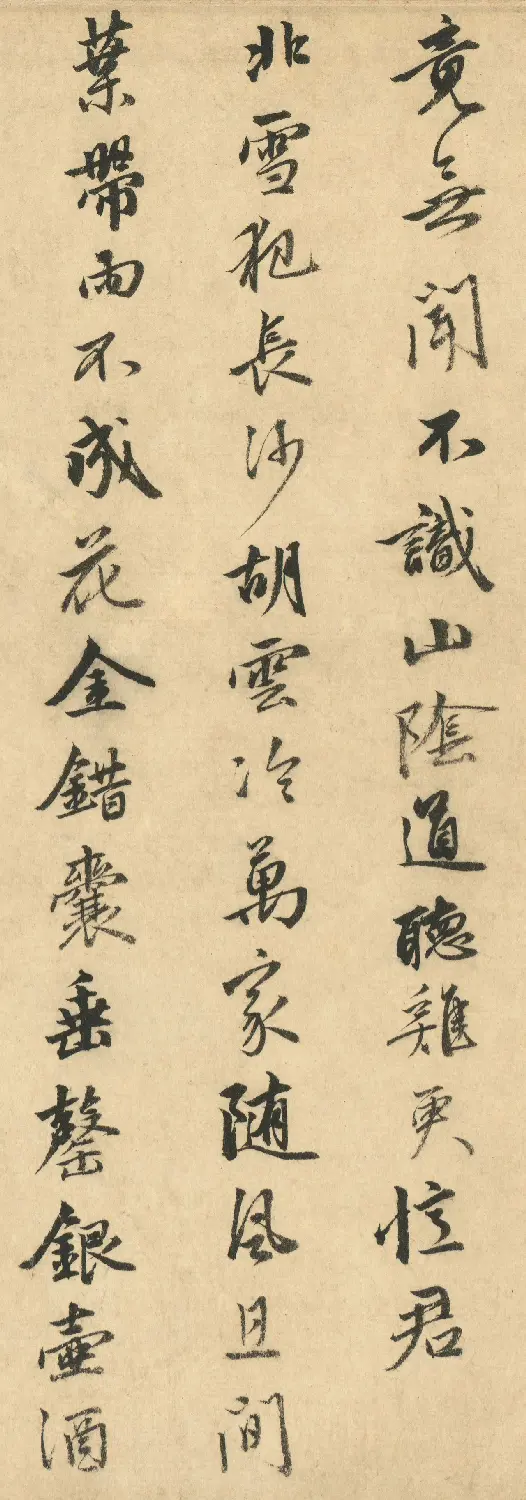 竟無聞不識山陰道聽雞更憶君
北雪犯長沙胡雲冷萬家随風且間
葉帶雨不成花金錯囊垂罄銀壺酒